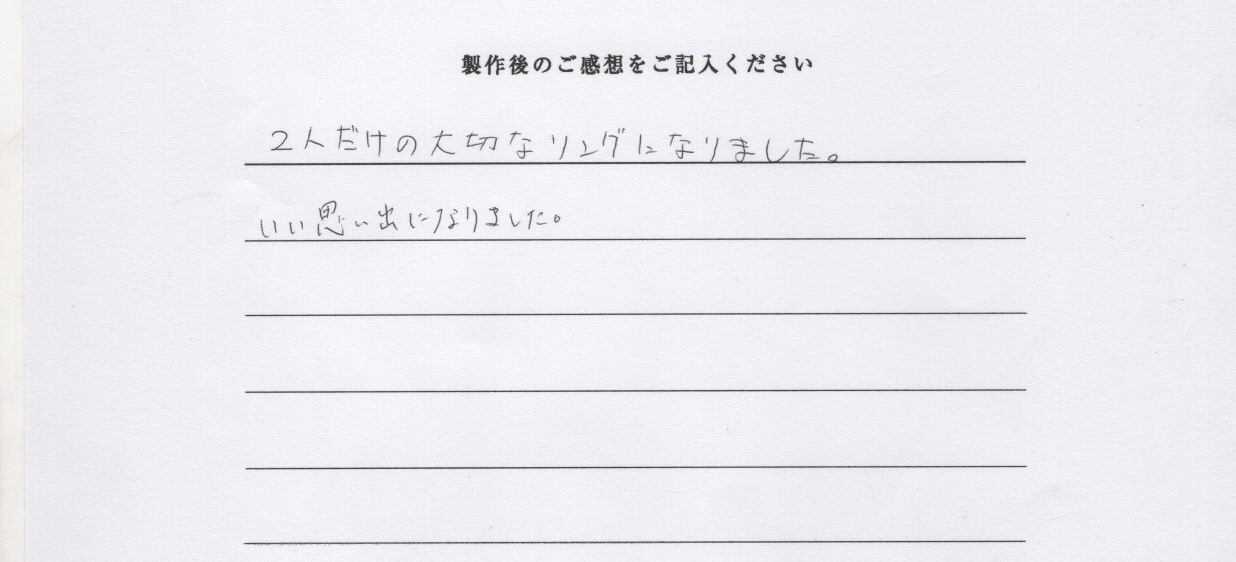 製作後のご感想をご記入ください
2人だけの大切なリングになりました。
いい思い出になりました。